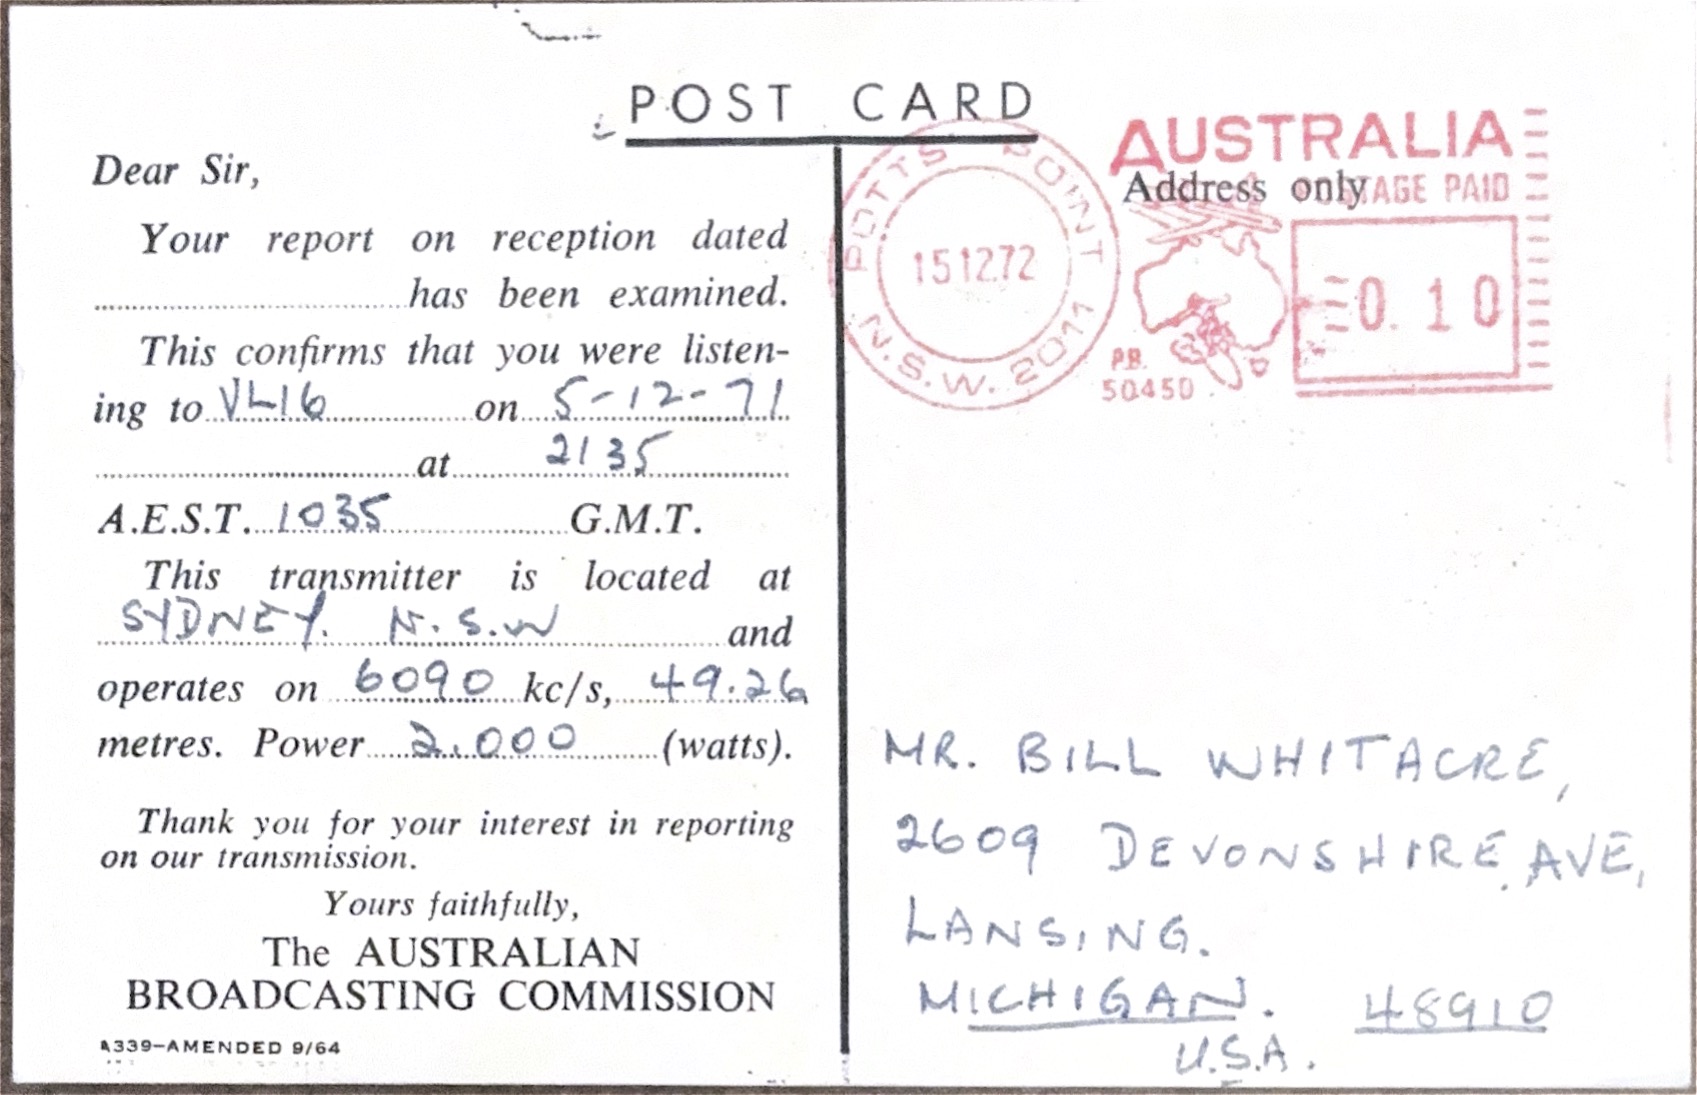 POST CARD
Dear Sir,
Your report on reception dated
has been examined.
This confirms that you were listen-
ing to VLI6 on 5-12-71
at 2135
A.E.S.T. 1035 G.M.T.
This transmitter is located at
SYDNEY. N.S.W and
operates on 6090 kc/s, 49.26
metres. Power 2.000 (watts).
Thank you for your interest in reporting
on our transmission.
Yours faithfully,
The AUSTRALIAN
BROADCASTING COMMISSION
A339-AMENDED 9/64
POTTS POINT
15 12 72
N.S.W. 2011
AUSTRALIA
Address only
POSTAGE PAID
0.10
P.B.
50450
MR. BILL WHITACRE,
2609 DEVONSHIRE AVE,
LANSING.
MICHIGAN. 48910
U.S.A.